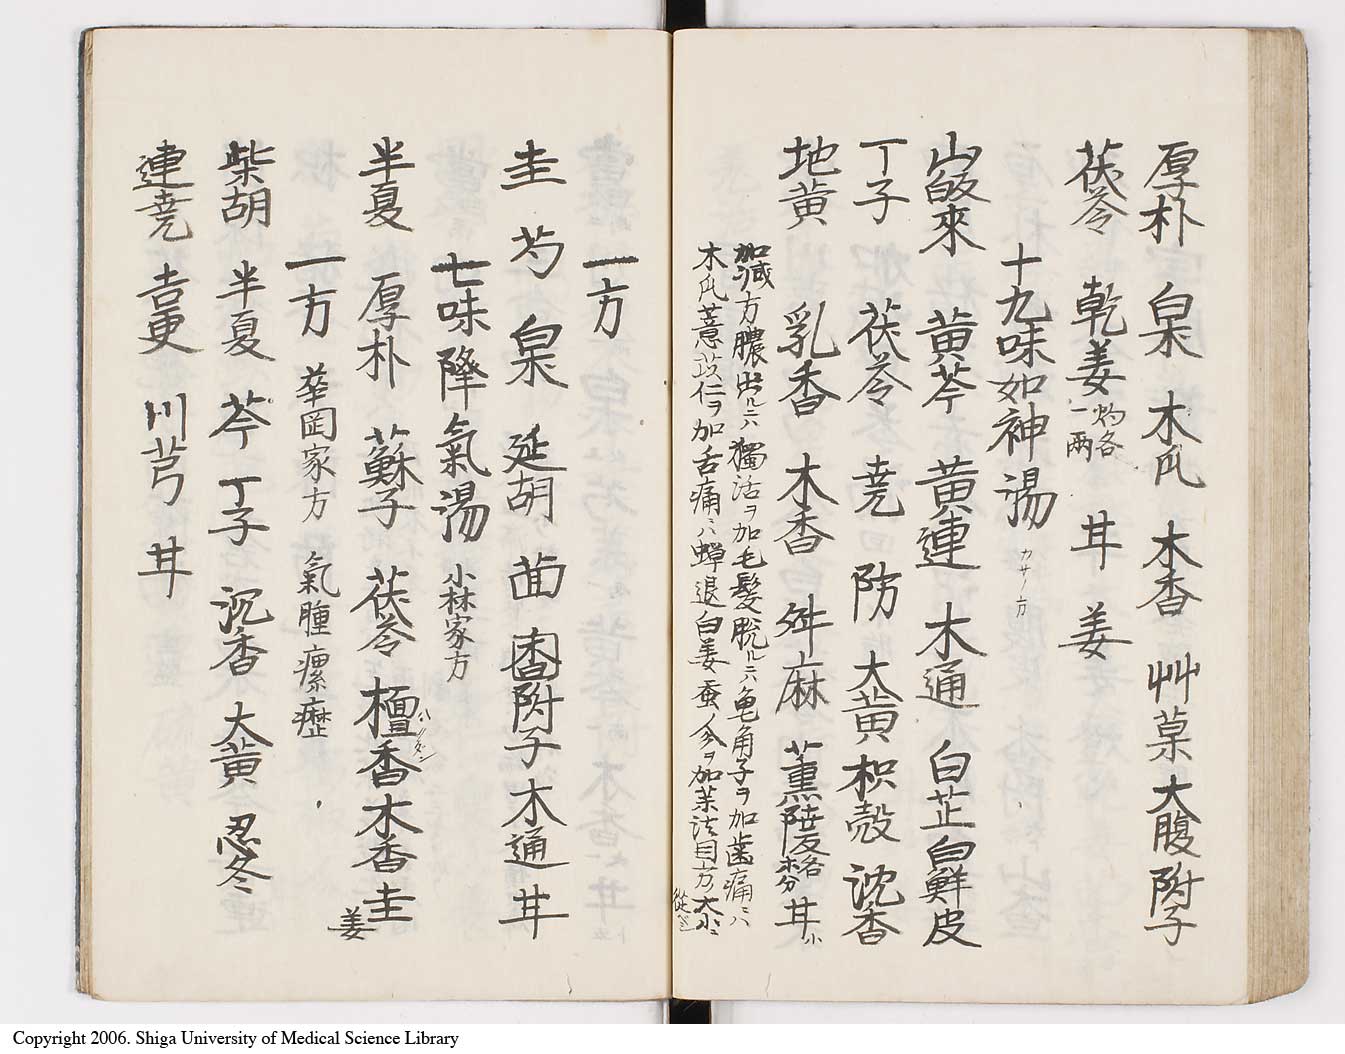 厚朴 枲 木瓜 木香 艸菓 大腹 附子
茯苓 乾姜 灼各一両 甘 姜
十九味如神湯 カサノ方
山皈來 黄芩 黄連 木通 白芷 白鮮皮
丁子 茯苓 荛 防 大黄 枳殻 沈香
地黄 乳香 木香 舛麻 薫陵各 甘小
加減方膿出ルニハ獨活ヲ加毛髪脱ルニハ亀角子ヲ加歯痛ニハ
木瓜薏苡仁ヲ加舌痛ニハ蟬退白姜蚕ヲ加
一方
圭 芍 枲 延胡 茴香 附子 木通 甘
七味降氣湯 小林家方
半夏 厚朴 蘇子 茯苓 檀香 木香 圭 姜
一方 華岡家方 氣腫瘰癧
柴胡 半夏 芩 丁子 沉香 大黄 忍冬
連荛 吉更 川芎 甘
Copyright 2006. Shiga University of Medical Science Library